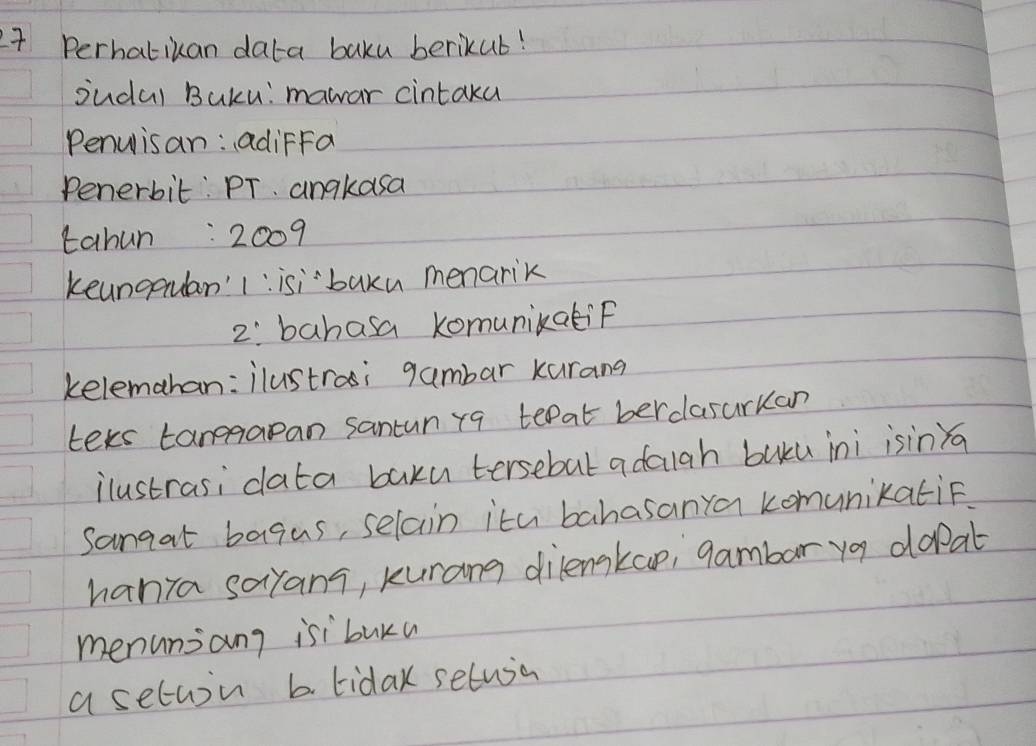 27 Perhatikan data buku berikut!
Judul Buku: mawar cintaku
Penulisan: adiffa
Penerbit: PT. angkasa
tahun : 2009
keunggulan: 1: isi buku menarik
2: bahasa komunikatif
kelemahan: ilustrasi gambar kurang
teks tanggapan santun yg tepat berdasarkan
ilustrasi data buku tersebut adalah buku ini isinya
sangat bagus, selain itu bahasanya komunikatif.
hanya sayang, kurang dilengkapi gambar yg dapat
menunjang isi buku
a setuju b. tidak setuju